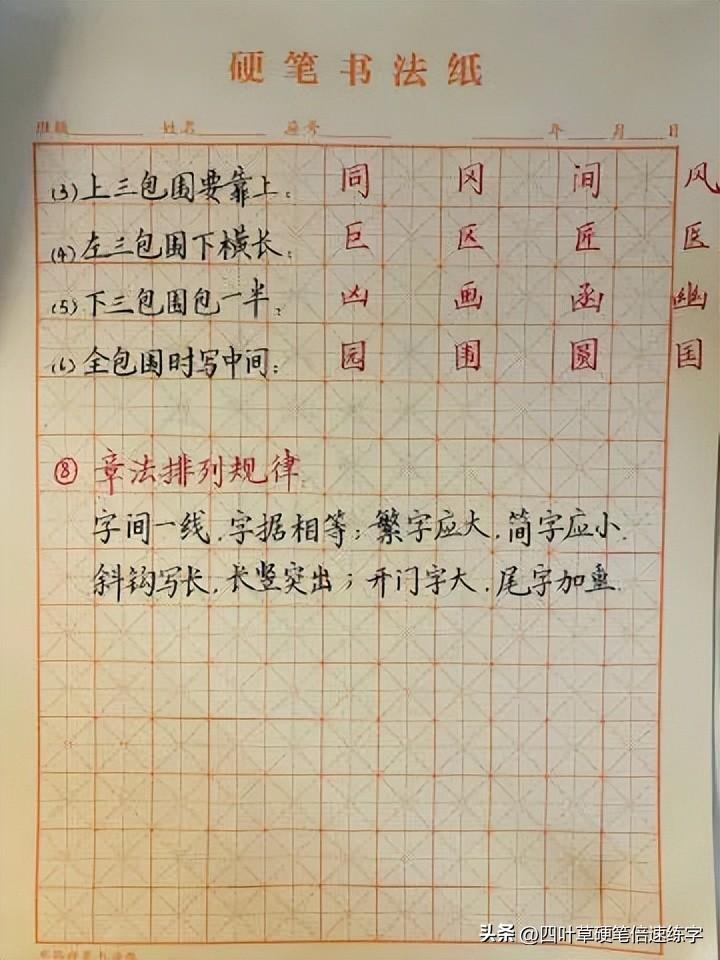 硬笔书法纸
班级 姓名 座号 年 月 日
(3)上三包围要靠上: 同 冈 间 风
(4)左三包围下横长: 巨 区 匠 医
(5)下三包围包一半: 凶 画 函 幽
(6)全包围时写中间: 园 围 圆 国
⑧ 章法排列规律
字间一线,字据相等;繁字应大,简字应小.
斜钩写长,长竖突出;开门字大,尾字加重.
头条 @四叶草硬笔倍速练字